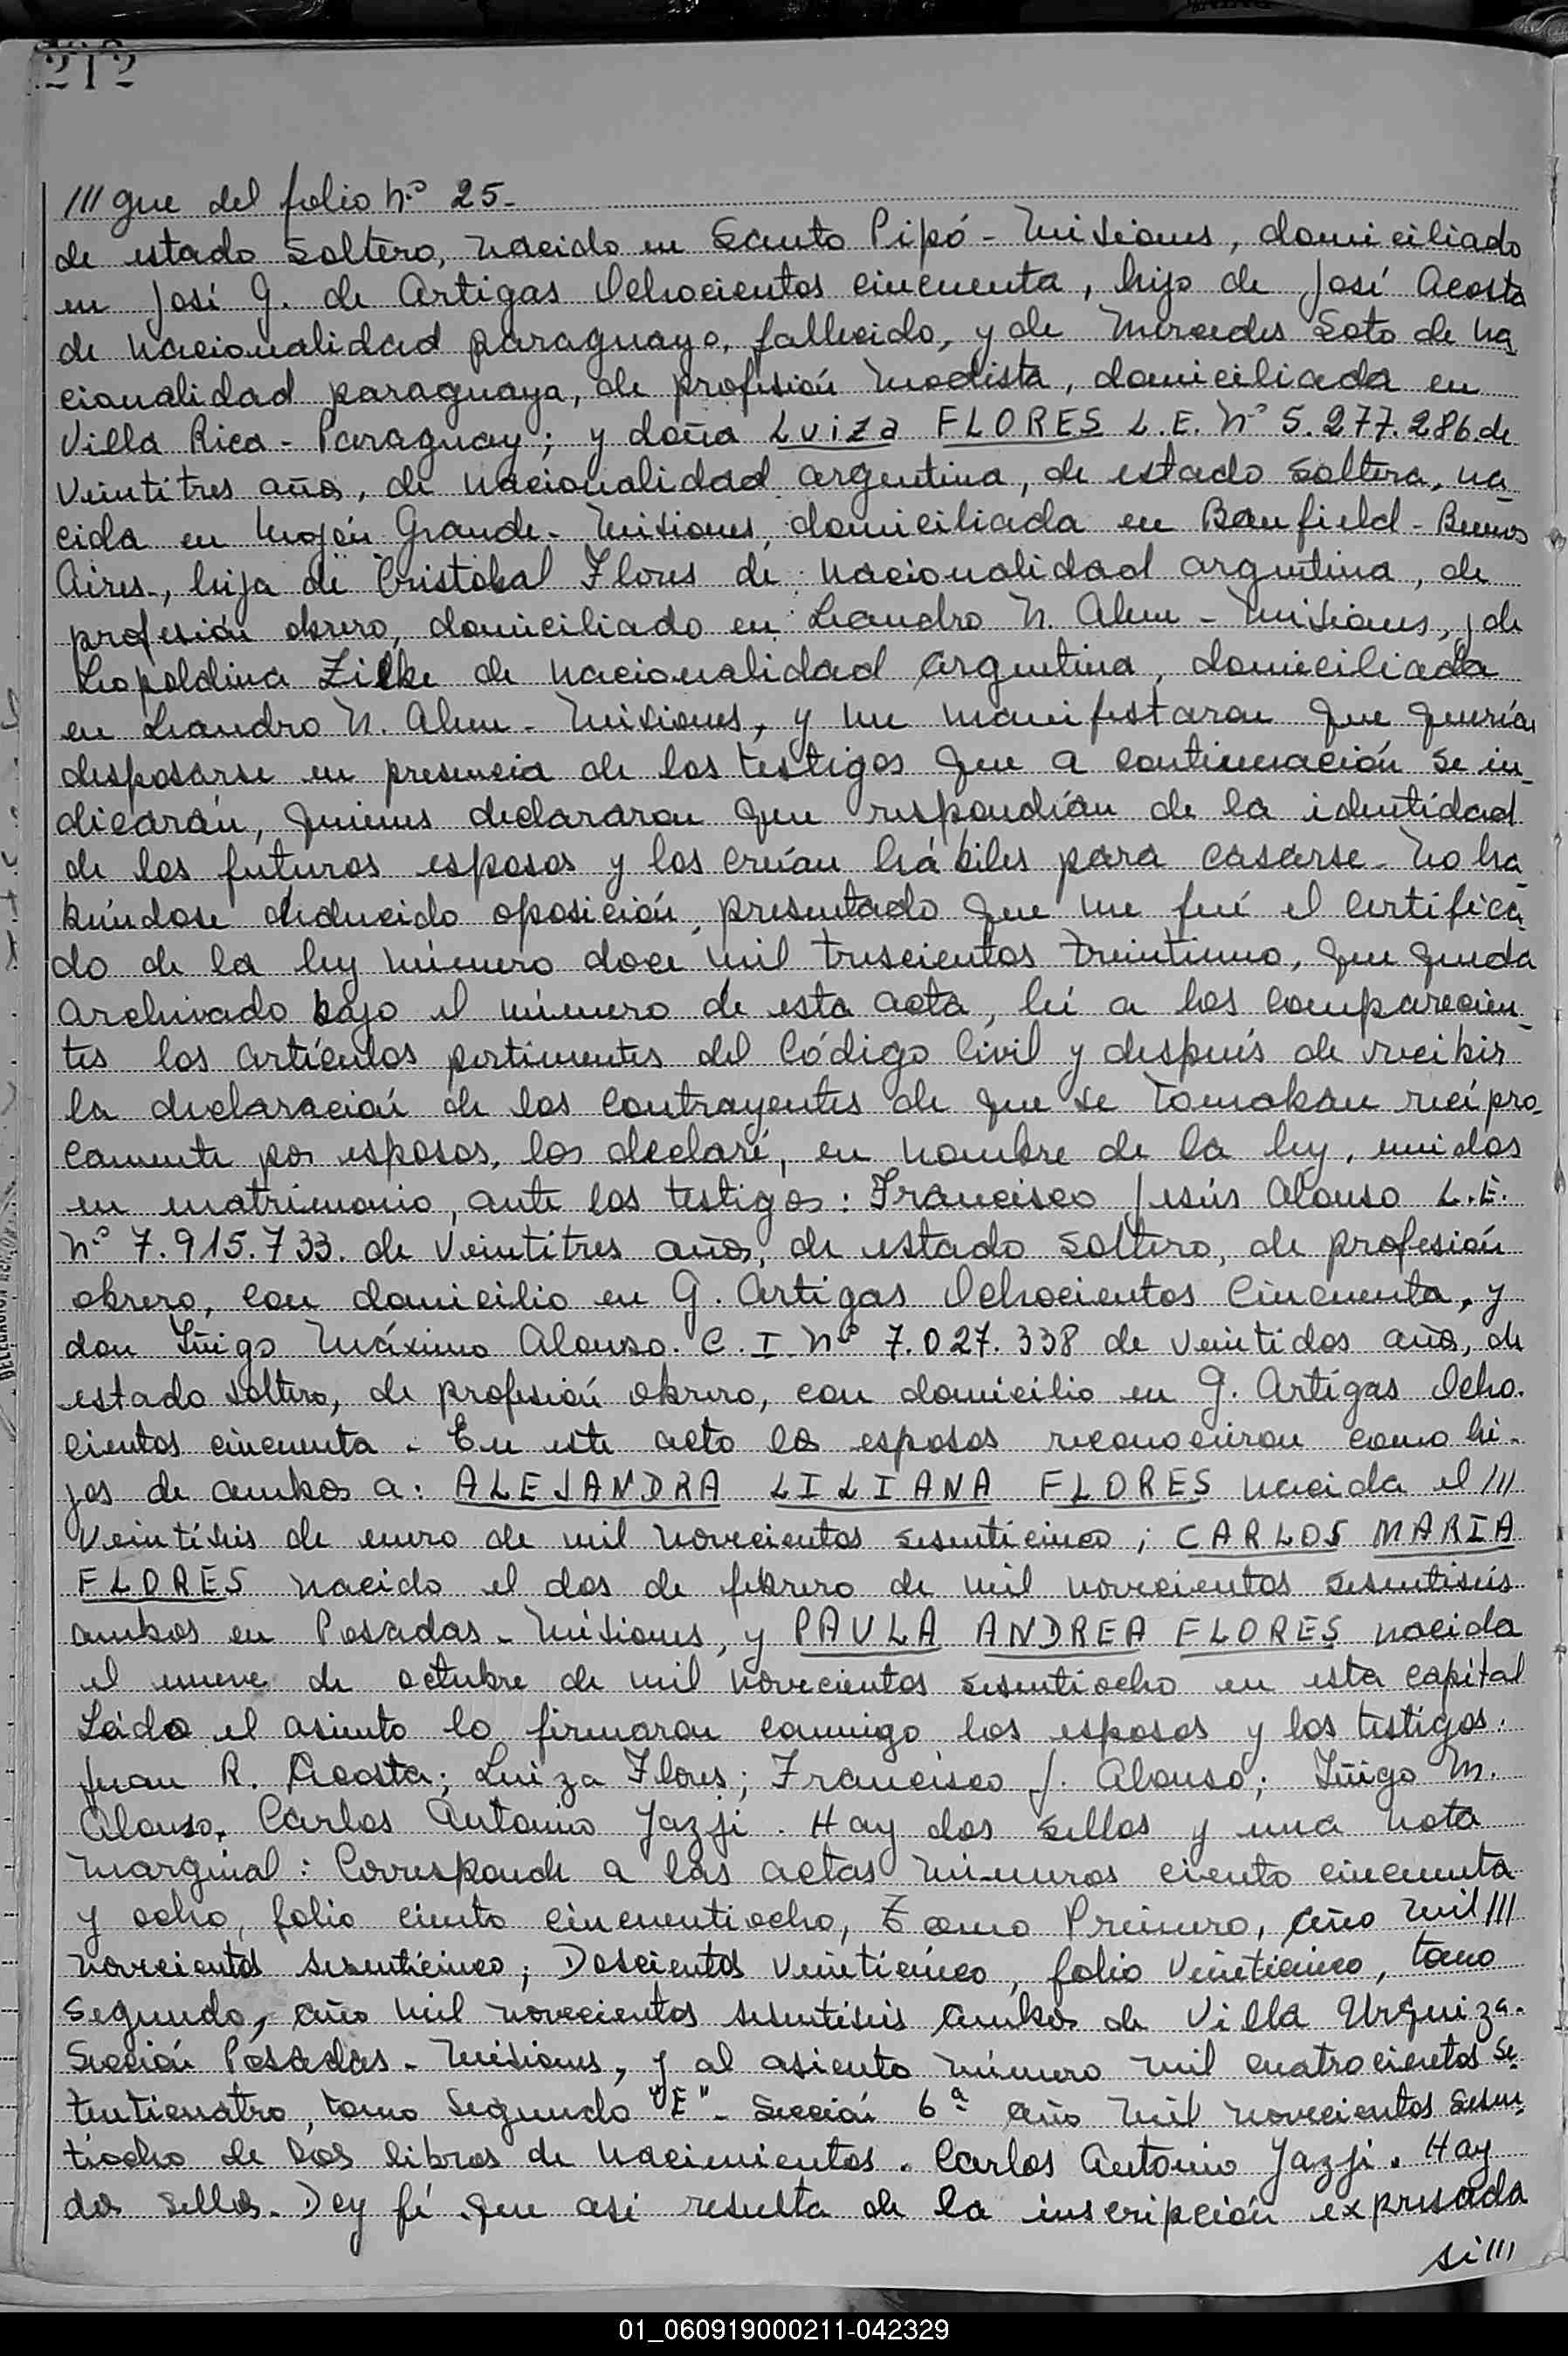 212
///gue del folio Nº 25-
de estado soltero, nacido en Santo Pipó - Misiones, domiciliado
en José G. de Artigas Ochocientos cincuenta, hijo de José Acosta
de nacionalidad paraguayo, fallecido, y de Mercedes Soto de na
cionalidad paraguaya, de profesión modista, domiciliada en
Villa Rica - Paraguay; y doña Luiza FLORES L.E. Nº 5.277.286 de
veintitres años, de nacionalidad argentina, de estado soltera, na_
cida en Mojón Grande - Misiones, domiciliada en Banfield - Buenos
Aires., hija de Cristobal Flores de nacionalidad argentina, de
profesión obrero, domiciliado en Leandro N. Alem - Misiones, y de
Leopoldina Zilke de nacionalidad argentina, domiciliada
en Leandro N. Alem - Misiones, y me manifestaron que querían
desposarse en presencia de los testigos que a continuación se in_
dicarán, quienes declararon que respondían de la identidad
de los futuros esposos y los creían hábiles para casarse - No ha_
biéndose deducido oposición, presentado que me fué el certifica_
do de la ley número doce mil trescientos treintiuno, que queda
archivado bajo el número de esta acta, leí a los comparecien_
tes los artículos pertinentes del Código Civil y después de recibir
la declaración de los contrayentes de que se tomaban recípro_
camente por esposos, los declaré, en nombre de la ley, unidos
en matrimonio, ante los testigos: Francisco Jesús Alonso L.E.
Nº 7.915.733. de veintitres años, de estado soltero, de profesión
obrero, con domicilio en G. Artigas Ochocientos Cincuenta, y
don Iñigo Máximo Alonso. C.I. Nº 7.027.338 de veintidos años, de
estado soltero, de profesión obrero, con domicilio en G. Artigas Ocho.
cientos cincuenta. En este acto los esposos reconocieron como hi-
jos de ambos a: ALEJANDRA LILIANA FLORES nacida el ///
veintiseis de enero de mil novecientos sesenticinco; CARLOS MARIA
FLORES nacido el dos de febrero de mil novecientos sesentiseis
ambos en Posadas - Misiones, y PAULA ANDREA FLORES nacida
el nueve de octubre de mil novecientos sesentiocho en esta capital
Leído el asiento lo firmaron conmigo los esposos y los testigos.
Juan R. Acosta; Luiza Flores; Francisco J. Alonso; Iñigo M.
Alonso. Carlos Antonio Jazji. Hay dos sellos y una nota
marginal: Corresponde a las actas números ciento cincuenta
y ocho, folio ciento cincuentiocho, Tomo Primero, año mil ///
novecientos sesenticinco; Doscientos veinticinco, folio veinticinco, tomo
Segundo, año mil novecientos sesentiseis ambos de Villa Urquiza-
Sección Posadas - Misiones, y al asiento número mil cuatrocientos se_
tenticuatro, tomo Segundo "E" - Sección 6ª año mil novecientos sesen_
tiocho de los libros de nacimientos. Carlos Antonio Jazji. Hay
dos sellos. Doy fé que así resulta de la inscripción expresada
si///
01_060919000211-042329